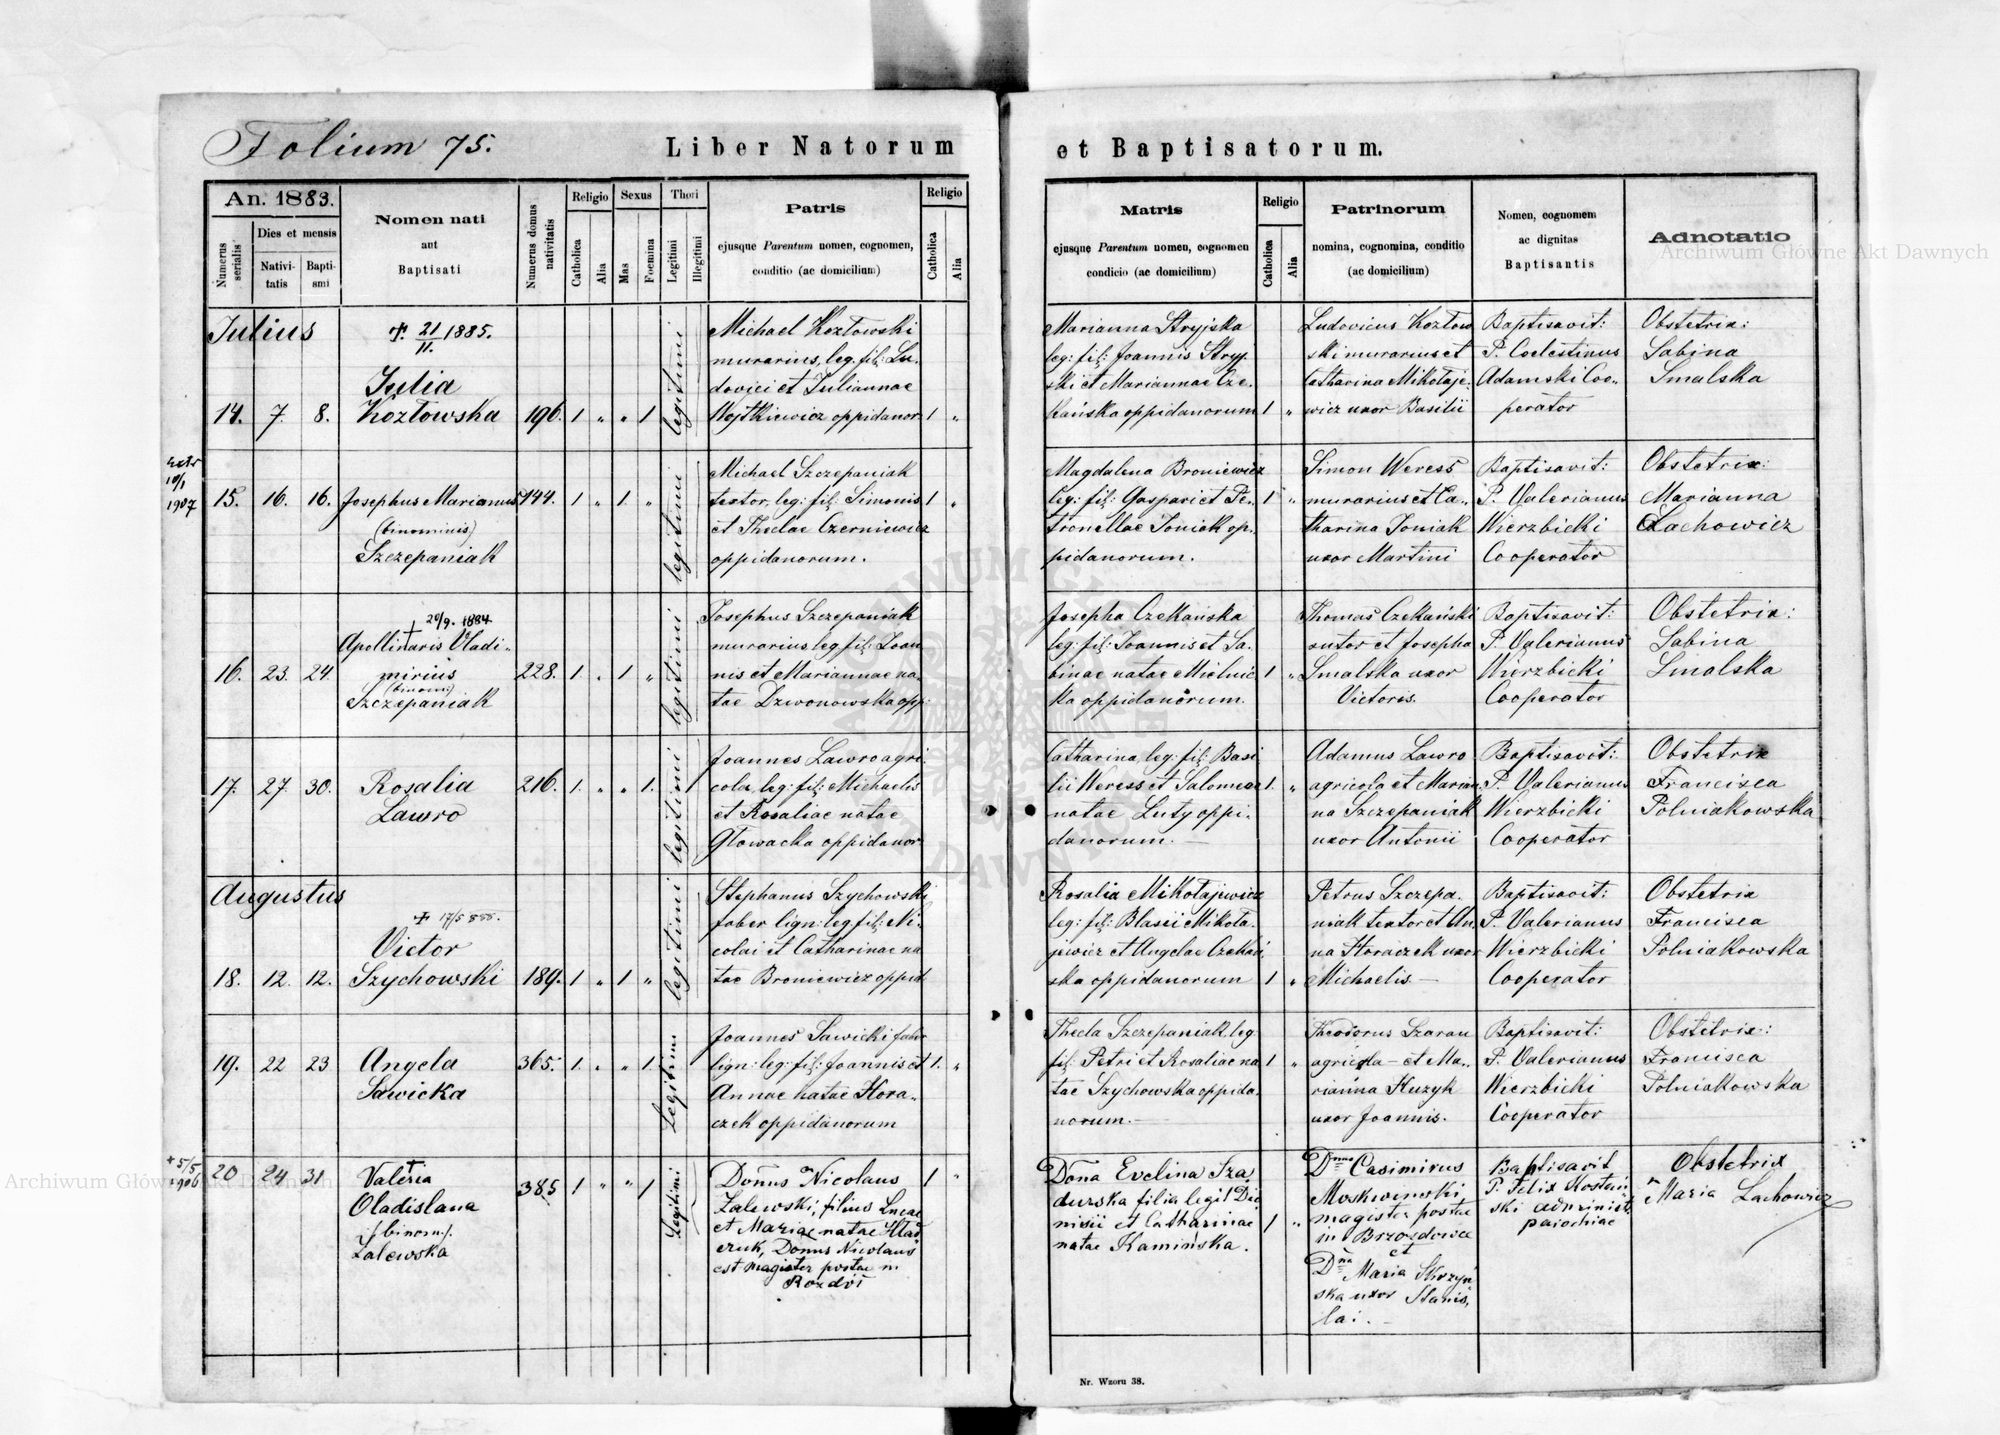 Folium 75.
Liber Natorum et Baptisatorum.
An. 1883.
Numerus serialis
Dies et mensis
Nativitatis
Baptismi
Nomen nati
aut
Baptisati
Numerus domus nativitatis
Religio
Catholica
Alia
Sexus
Mas
Foemina
Thori
Legitimi
Illegitimi
Patris
ejusque Parentum nomen, cognomen,
conditio (ac domicilium)
Religio
Catholica
Alia
Matris
ejusque Parentum nomen, cognomen
condicio (ac domicilium)
Religio
Catholica
Alia
Patrinorum
nomina, cognomina, conditio
(ac domicilium)
Nomen, cognomem
ac dignitas
Baptisantis
Adnotatio
Julius
14. 7. 8.
+ 21/11. 1885.
Julia
Kozłowska
196. 1 " " 1
legitimi
Michael Kozłowski
murarius, leg. fil: Lu-
dovici et Juliannae
Wojtkiewicz oppidanor.
1 "
Marianna Stryjska
leg: fil: Joannis Stryj-
ski et Mariannae Cze-
kańska oppidanorum
1 "
Ludovicus Kozłow
ski murarius et
Catharina Mikołaje-
wicz uxor Basilii
Baptisavit:
P. Coelestinus
Adamski Coo-
perator
Obstetrix:
Sabina
Smalska
1907
15. 16. 16.
Josephus Marianus
(binominis)
Szczepaniak
144. 1 " 1 "
legitimi
Michael Szczepaniak
textor, leg: fil: Simonis
et Theclae Czerniewicz
oppidanorum.
1 "
Magdalena Broniewicz
leg: fil: Gaspari et Pe-
tronellae Toniak op-
pidanorum.
1 "
Simon Weress
murarius et Ca-
tharina Toniak
uxor Martini
Baptisavit:
P. Valerianus
Wierzbicki
Cooperator
Obstetrix:
Marianna
Lachowicz
16. 23. 24.
+ 20/9. 1884
Apollinaris Vladi-
mirius
(binomi)
Szczepaniak
228. 1 " 1 "
legitimi
Josephus Szczepaniak
murarius leg fil: Joan
nis et Mariannae na-
tae Dzwonowska opp:
Josepha Czekańska
leg: fil: Joannis et Sa-
binae natae Mielnic
ka oppidanorum.
1 "
Thomas Czekański
sutor et Josepha
Smalska uxor
Victoris.
Baptisavit:
P. Valerianus
Wierzbicki
Cooperator
Obstetrix:
Sabina
Smalska
17. 27. 30.
Rosalia
Lawro
216. 1. " " 1.
legitimi
Joannes Lawro agri-
cola, leg: fil: Michaelis
et Rosaliae natae
Głowacka oppidanor
Catharina, leg: fil: Basi
lii Weress et Salomeae
natae Luty oppi-
danorum. —
1. "
Adamus Lawro
agricola et Marian
na Szczepaniak
uxor Antonii
Baptisavit:
P. Valerianus
Wierzbicki
Cooperator
Obstetrix
Francisca
Polniakowska
Augustus
18. 12. 12.
+ 17/5 885.
Victor
Szychowski
189. 1 " 1 "
legitimi
Stephanus Szychowski
faber lign: leg fil: Ni-
colai et Catharinae na
tae Broniewicz oppid
Rosalia Mikołajewicz
leg: fil: Blasii Mikoła-
jewicz et Angelae Czekań
ska oppidanorum
1 "
Petrus Szczepa-
niak textor et An-
na Horaczek uxor
Michaelis —
Baptisavit:
P. Valerianus
Wierzbicki
Cooperator
Obstetrix
Francisca
Polniakowska
19. 22 23
Angela
Sawicka
365. 1. " " 1.
Legitimi
Joannes Sawicki fabr
lign: leg: fil: Joannis et
Annae natae Hora-
czek oppidanorum
1. "
Thecla Szczepaniak leg:
fil: Petri et Rosaliae na
tae Szychowska oppida-
norum. —
1 "
Theodorus Szaran
agricola — et Ma-
rianna Kuzyk
uxor Joannis.
Baptisavit:
P. Valerianus
Wierzbicki
Cooperator
Obstetrix:
Francisca
Polniakowska
+ 5/5
1906
20 24 31
Valeria
Vladislava
/:binom:/
Zalewska
385 1 " " 1
Legitimi
Domnus Nicolaus
Zalewski, filius Lucae
et Mariae natae Wład
czuk, Domnus Nicolaus
est magister postae in
Rozdół
1 "
Domna Evelina Sza
durska filia legit Dio
nisii et Catharinae
natae Kamińska.
1 "
Dnus Casimirus
Moskwenski,
magister postae
in Brzozdowce
et
Dna Maria Skrzyń
ska uxor Stanis-
lai. —
Baptisavit
P. Felix Kostań
ski administr
parochiae
Obstetrix
Maria Lachowicz
Nr. Wzoru 38.
Archiwum Główne Akt Dawnych
Archiwum Główne Akt Dawnych